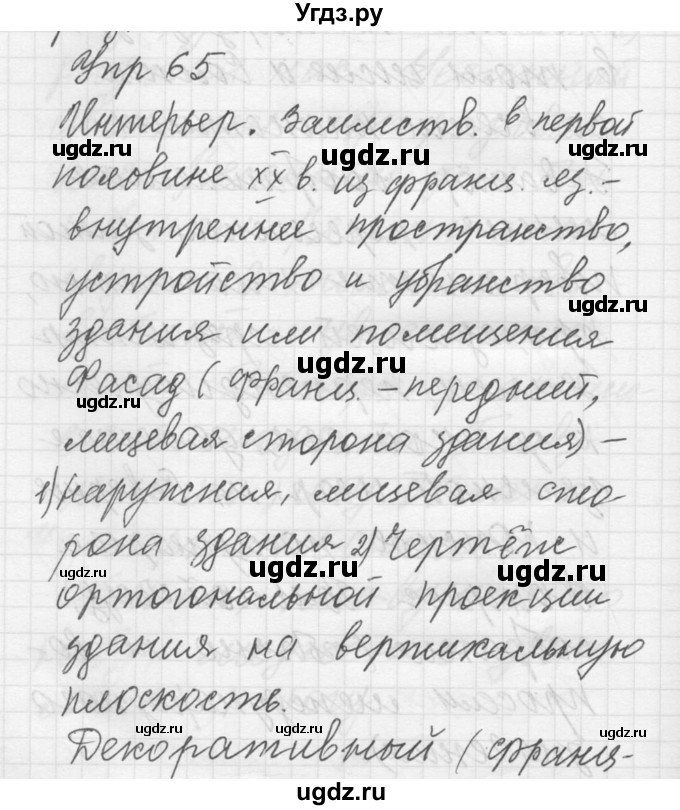 Угдз.ру
Упр 65
Интерьер. Заимств. в первой
ugdz.ru ugdz.ru ugdz.ru
половине XX в. из франц. яз. –
внутреннее пространство,
ugdz.ru
устройство и убранство
ugdz.ru
здания или помещения
ugdz.ru
Фасад (франц. – передний,
ugdz.ru
лицевая сторона здания) –
1) наружная, лицевая сто-
рона здания 2) Чертёж
ugdz.ru ugdz.ru ugdz.ru
ортогональной проекции
здания на вертикальную
ugdz.ru
плоскость.
ugdz.ru ugdz.ru
Декоративный (франц-
ugdz.ru ugdz.ru ugdz.ru